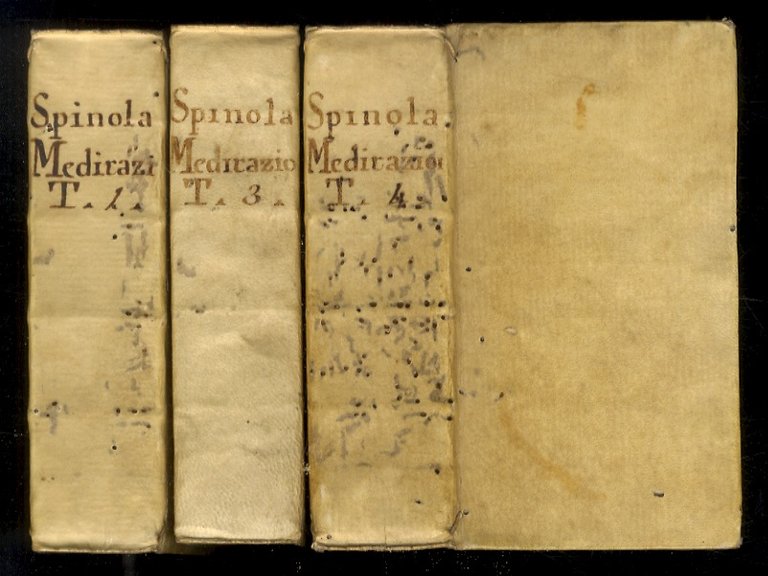 Spinola
Medirazi
T. 1.
Spinola
Medirazio
T. 3.
Spinola.
Medirazion
T. 4